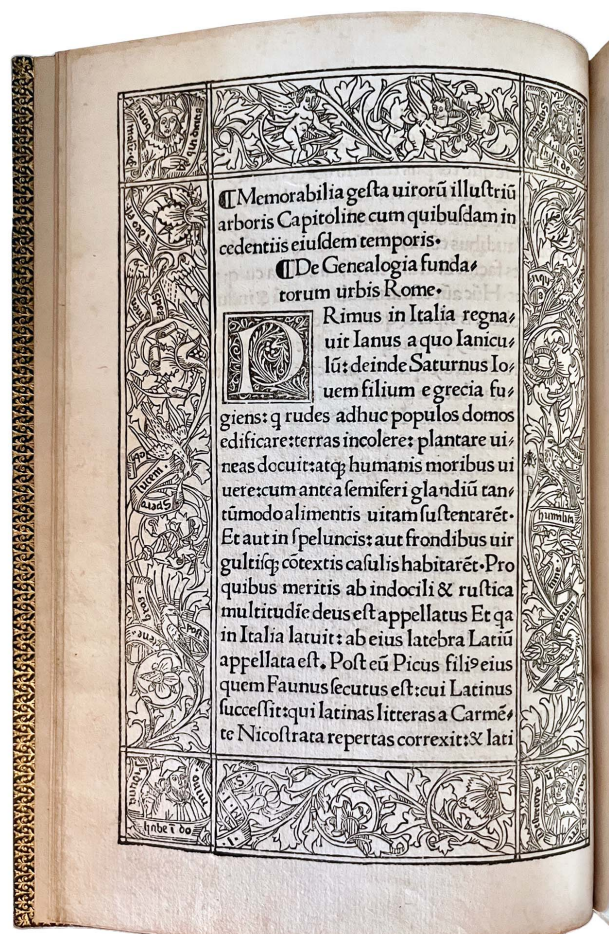 ¶Memorabilia geſta uirorū illuſtriū
arboris Capitoline cum quibuſdam in
cedentiis eiuſdem temporis.
¶De Genealogia funda⸗
torum urbis Rome.
PRimus in Italia regna⸗
uit Ianus a quo Ianicu⸗
lū: deinde Saturnus Io⸗
uem filium e grecia fu⸗
giens: q rudes adhuc populos domos
edificare: terras incolere: plantare ui⸗
neas docuit: atqꝫ humanis moribus ui
uere: cum antea ſemiferi glandiū tan⸗
tūmodo alimentis uitam ſuſtentarēt.
Et aut in ſpeluncis: aut frondibus uir
gultiſqꝫ cōtextis caſulis habitarēt. Pro
quibus meritis ab indocili & ruſtica
multitudīe deus eſt appellatus Et qa
in Italia latuit: ab eius latebra Latiū
appellata eſt. Poſt eū Picus filiꝯ eius
quem Faunus ſecutus eſt: cui Latinus
ſucceſſit: qui latinas litteras a Carmē⸗
te Nicoſtrata repertas correxit: & lati
Spero
lucem
poſt
tene
bras
humilita